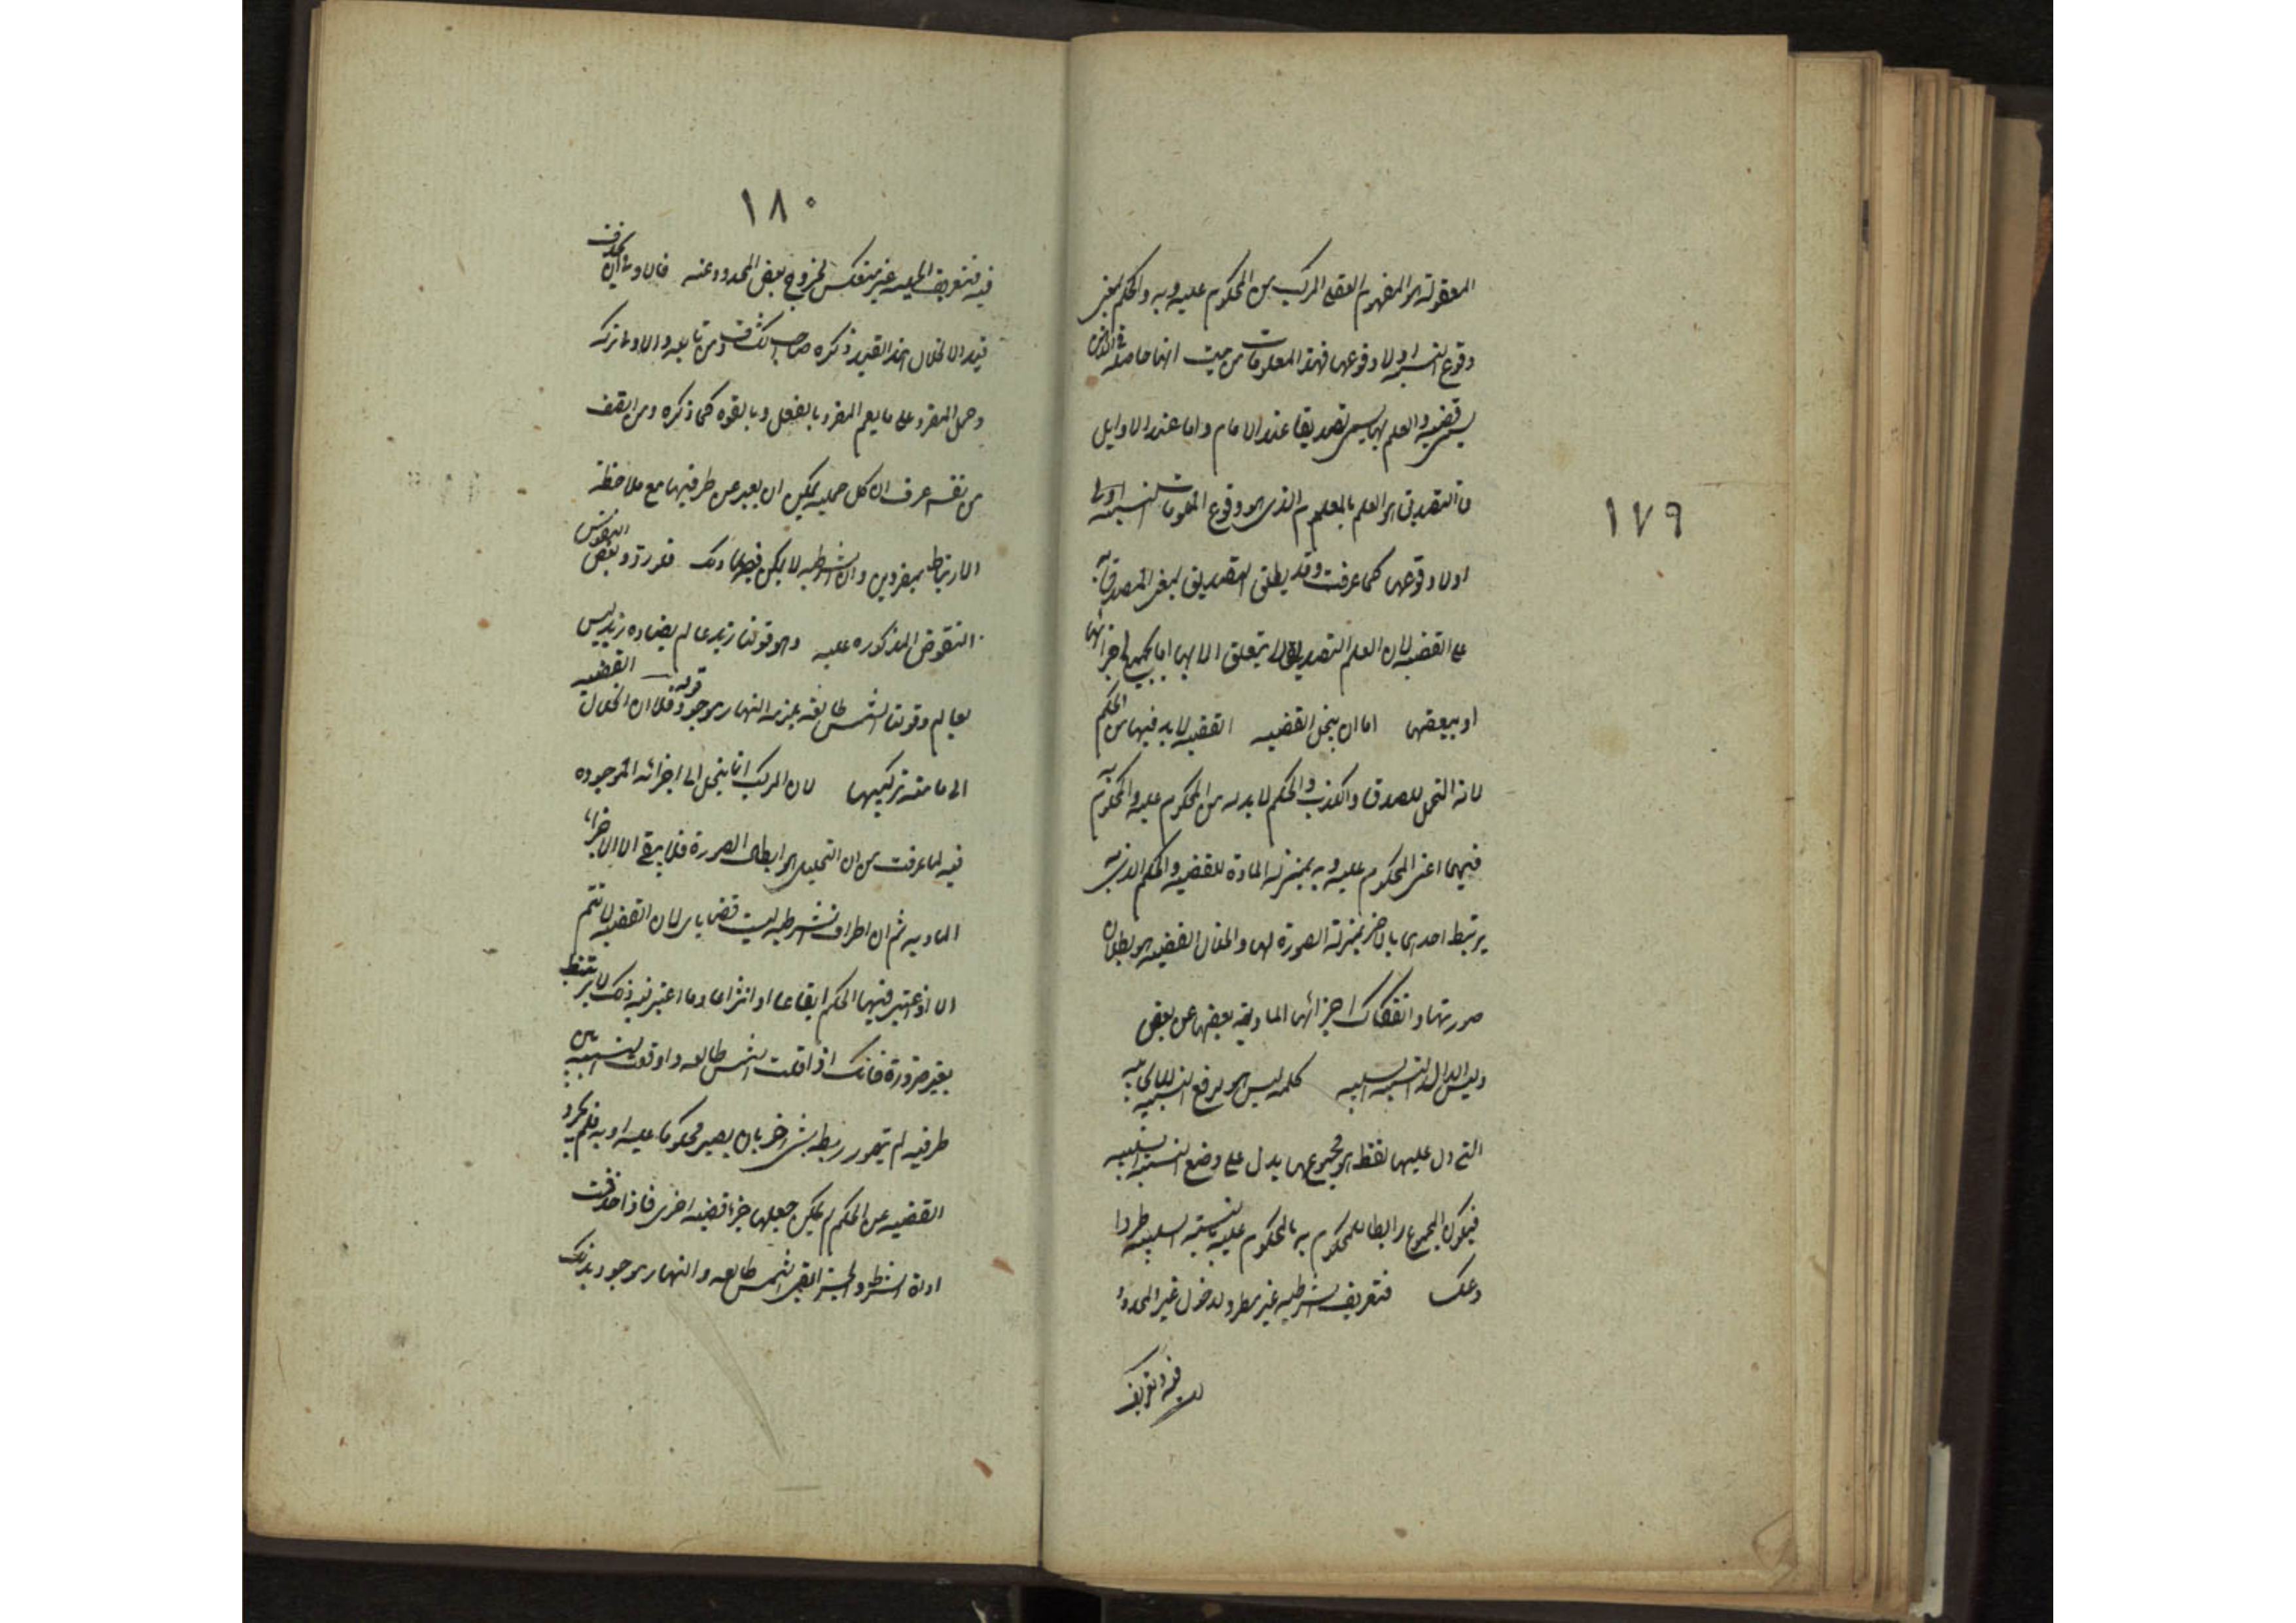 ١٧٩
المعقولة هو المفهوم العقلى المركب من المحكوم عليه وبه والحكم بمعنى
وقوع النسبة اولا وقوعها فهذه المعلومات من حيث انها حاصلة فى الذهن
يسمى قضية والعلم بها يسمى تصديقا عند الامام واما عند الاوايل
فالتصديق هو العلم بالمعلوم الذى هو وقوع النسبة
اولا وقوعها كما عرفت وقد يطلق التصديق بمعنى المصدق به
على القضية لان العلم التصديقى لا يتعلق الا بها اما بجميع اجزائها
او ببعضها اما ان ينحل القضيه القضيه لا بد فيها من الحكم
لانه المحتمل للصدق والكذب والحكم لا بد له من المحكوم عليه والمحكوم به
فيهما اعنى المحكوم عليه وبه بمنزلة المادة للقضيه والحكم الذى به
يرتبط احدهما بالاخر بمنزلة الصورة لها وانحلال القضيه هو بطلان
صورتها وانفكاك اجزائها الماديه بعضها عن بعض
وليس الدال النسبة السلبيه كلمه ليس هو لرفع النسبة الايجابيه
التى دل عليها لفظ هو فمجموعهما يدل على وضع النسبة السلبيه
فيكون المجموع رابطا للمحكوم به بالمحكوم عليه بالنسبة السلبيه طردا
وعكسا فتعريف الشرطيه غير مطرد لدخول غير المحدود
فيه وتعريف
١٨٠
فيه فتعريف الحمليه غير منعكس لخروج بعض المحدود عنه فالاولى ان يحذف
قيد الانحلال هذا القيد ذكره صاحب الكشف ومن تابعه والاولى تركه
وحمل المفرد على ما يعم المفرد بالفعل وبالقوه كما ذكره ومن انصف
من نفسه عرف ان كل حمليه يمكن ان يعبر عن طرفيها مع ملاحظة
الارتباط بمفردين وان الشرطيه لا يمكن فيها ذلك فلو رد وبعض النقوض
النقوض المذكوره عليه وهو قولنا زيد عالم يضاده زيد ليس
بعالم وقولنا الشمس طالعة يلزمه النهار موجود قوله فلا ان انحلال القضيه
الى ما منه تركيبها لان المركب انما ينحل الى اجزائه الموجوده
فيه لما عرفت من ان التحليل هو ابطال الصورة فلا يبقى الا الاجزاء
الماديه ثم ان اطراف الشرطيه ليست قضايا لان القضيه لا تتم
الا اذا اعتبر فيها الحكم ايقاعا او انتزاعا وما اعتبر فيه ذلك لا يرتبط
بغيره ضرورة فانك اذا قلت الشمس طالعه واوقعت النسبة بين
طرفيه لم يتصور ربطه بشئ اخر بان يصير محكوما عليه او به فلم يجرد
القضيه عن الحكم لم يمكن جعلها جزء قضيه اخرى فاذا حذفت
اداة الشرط والجزاء بقى الشمس طالعه والنهار موجود بذلك